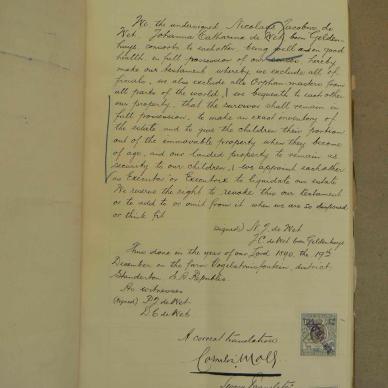 We the undersigned Nicolaas Jacobus de
Wet Johanna Catharina de Wet born Gelden-
huys consorts to eachother being well and in good
health, in full possession of our senses hereby
make our testament whereby we exclude all of
friends, we also exclude all Orphan masters from
all parts of the world, & we bequeath to each other
our property, that the survivor shall remain in
full possession, to make an exact inventory of
the estate and to give the children their portion
out of the immovable property when they become
of age, and our landed property to remain as
security to our children, & we appoint eachother
as Executor or Executrix to liquidate our estate
We reserve the right to revoke this our testament
or to add to or omit from it when we are so disposed
or think fit
signed N. J. de Wet
J C de Wet born Geldenhuys
Thus done in the year of our Lord 1890, the 19th
December on the farm Vogelstruisfontein, district
Standerton S. A. Republic
As witnesses
(signed) P J de Wet
D. C de Wet
A correct translation
Sworn Translator